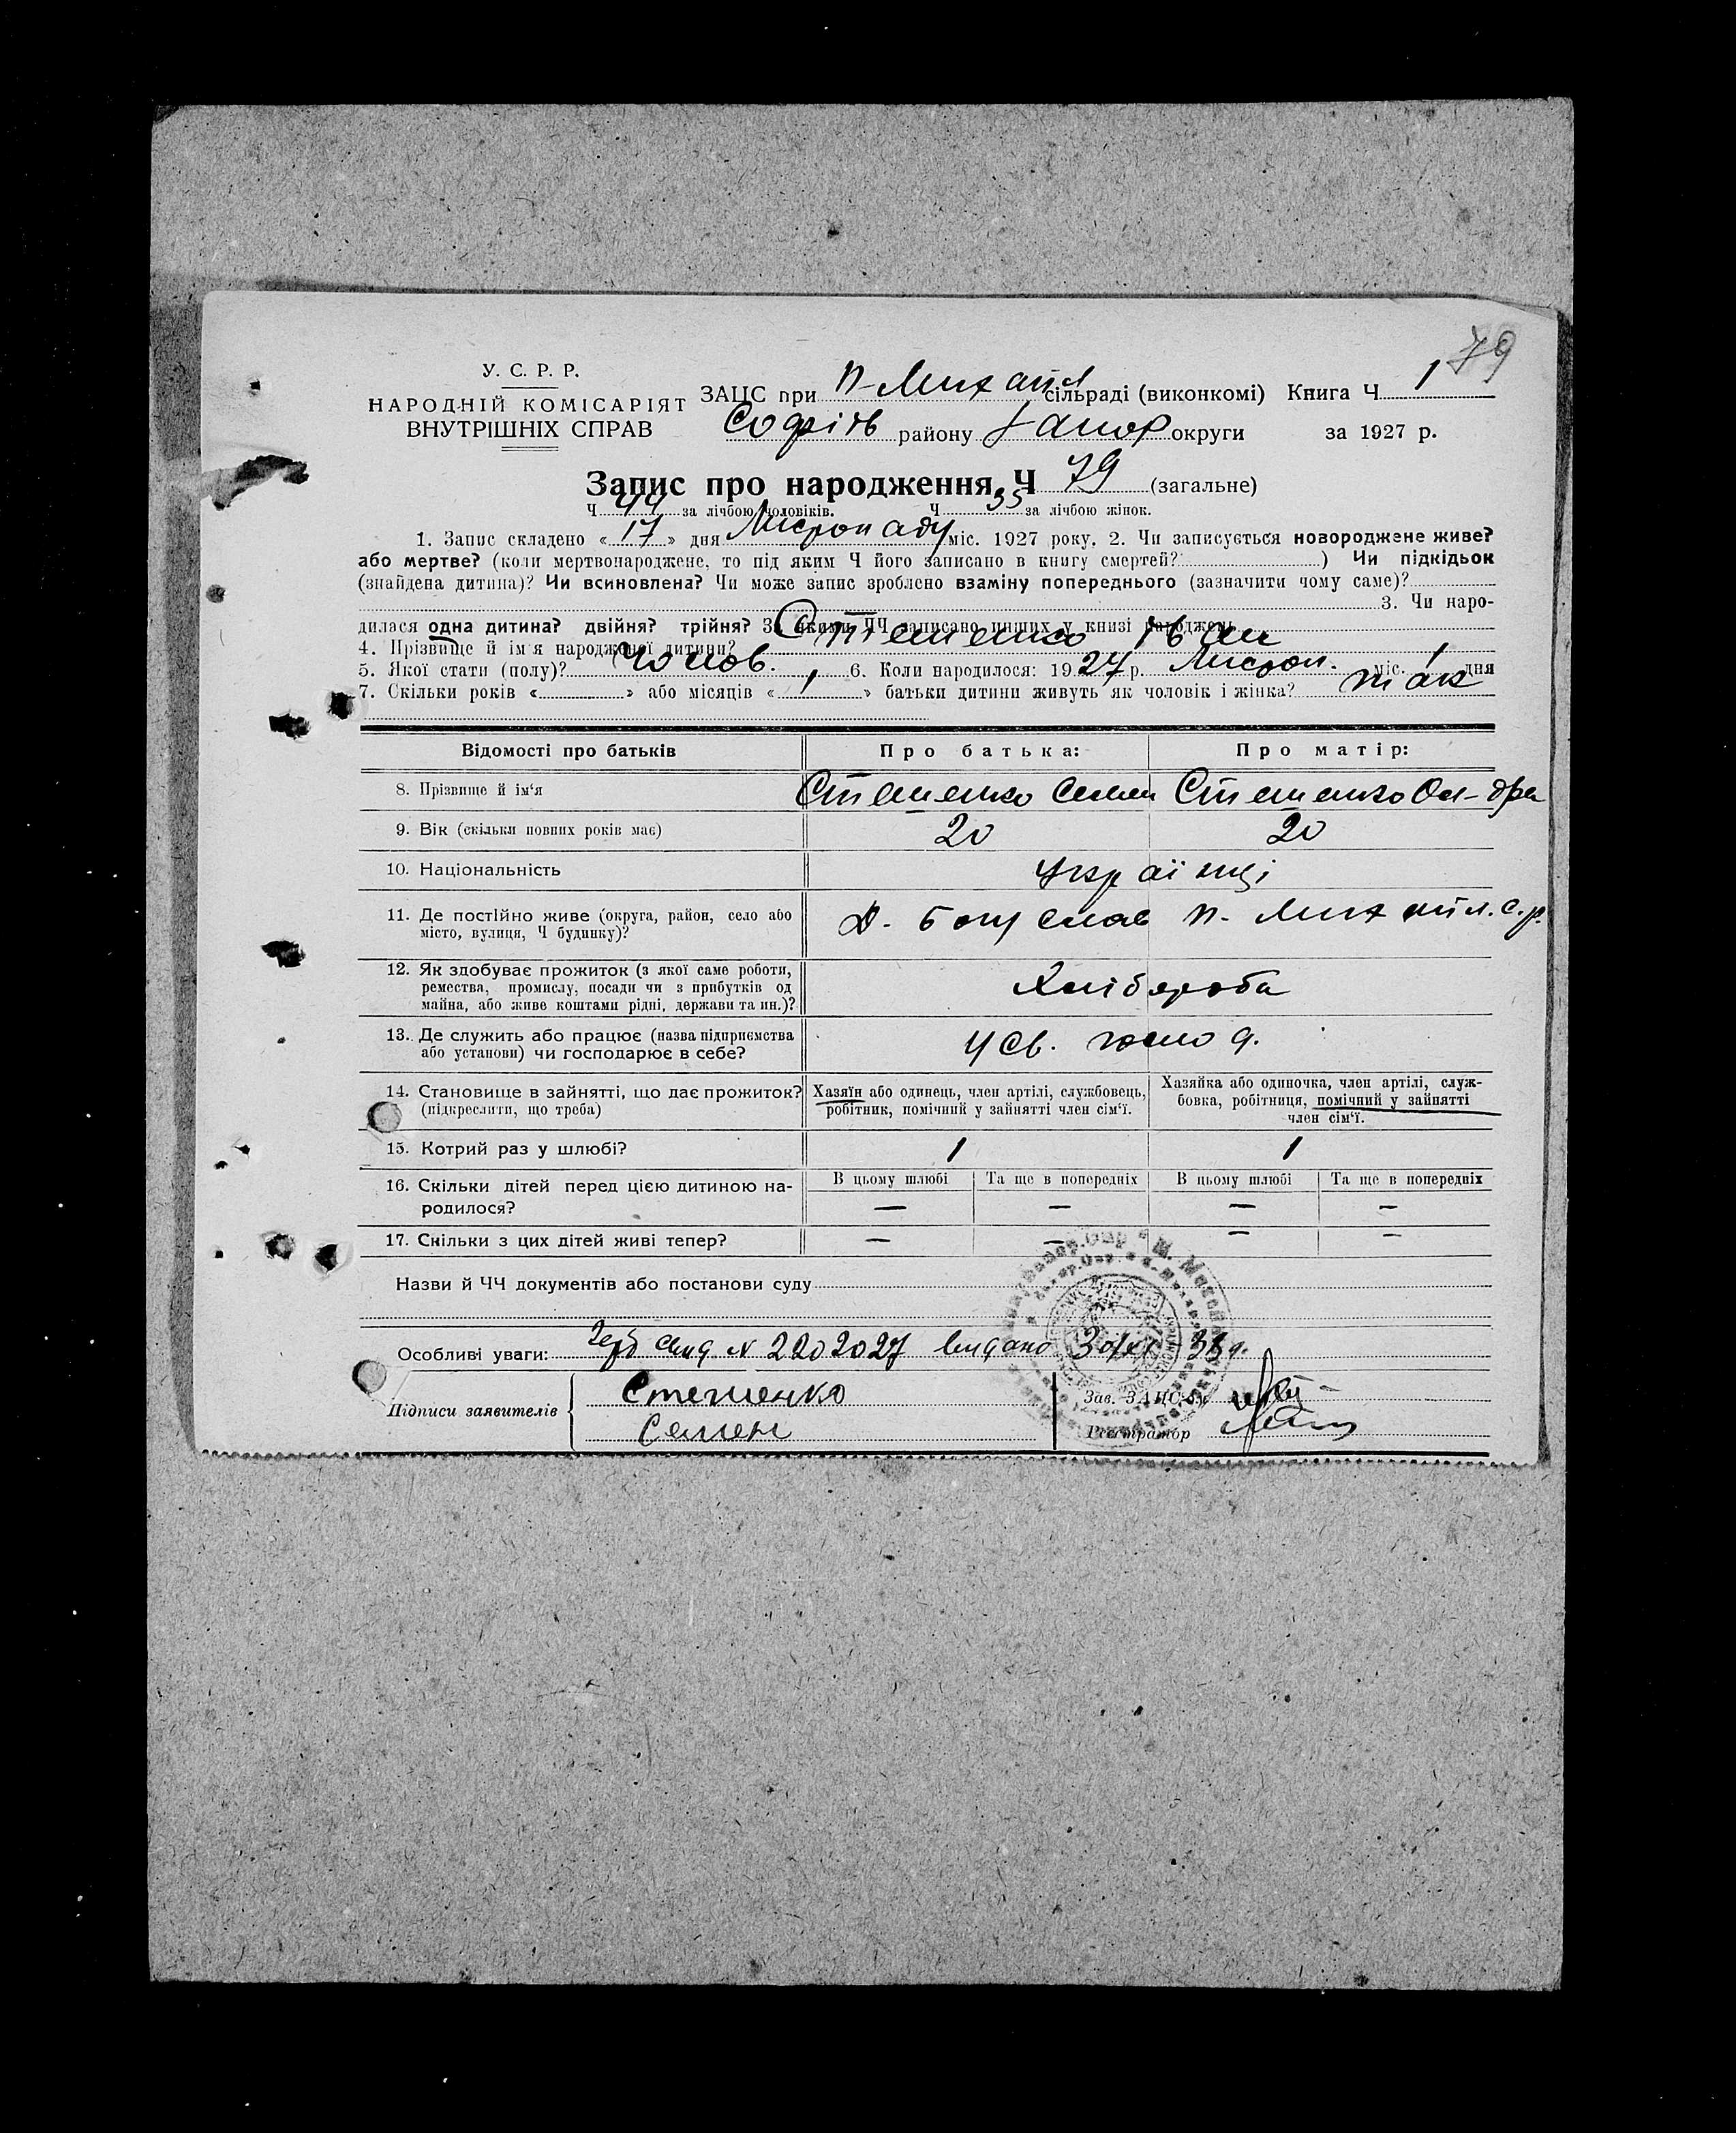 79
У. С. Р. Р.
НАРОДНІЙ КОМІСАРІЯТ
ВНУТРІШНІХ СПРАВ
ЗАЦС при П-Михайл сільраді (виконкомі) Книга Ч 1
Софіїв району Запор округи за 1927 р.
Запис про народження Ч 79 (загальне)
Ч 44 за лічбою чоловіків. Ч 35 за лічбою жінок.
1. Запис складено « 17 » дня Листопаду міс. 1927 року. 2. Чи записується новороджене живе?
або мертве? (коли мертвонароджене, то під яким Ч його записано в книгу смертей? ) Чи підкідьок
(знайдена дитина)? Чи всиновлена? Чи може запис зроблено взаміну попереднього (зазначити чому саме)?
3. Чи наро-
дилася одна дитина? двійня? трійня? За якими ЧЧ записано инших у книзі народжень
4. Прізвище й ім'я народженої дитини? Стешенко Іван
5. Якої статі (полу)? Чолов. 6. Коли народилося: 1927 р. Листоп. міс. 1 дня
7. Скільки років « » або місяців « 1 » батьки дитини живуть як чоловік і жінка? так
Відомості про батьків Про батька: Про матір:
8. Прізвище й ім'я Стешенко Семен Стешенко Ол-дра
9. Вік (скільки повних років має) 20 20
10. Національність Українці
11. Де постійно живе (округа, район, село або
місто, вулиця, Ч будинку)? Д. Богуслав П-Михайл. с. р.
12. Як здобуває прожиток (з якої саме роботи,
ремества, промислу, посади чи з прибутків од
майна, або живе коштами рідні, держави та ин.)? Хліборобa
13. Де служить або працює (назва підприємства
або установи) чи господарює в себе? У св. госпо д.
14. Становище в зайнятті, що дає прожиток?
(підкреслити, що треба)
Хазяїн або одинець, член артілі, службовець,
робітник, помічний у зайнятті член сім'ї.
Хазяйка або одиночка, член артілі, служ-
бовка, робітниця, помічний у зайнятті
член сім'ї.
15. Котрий раз у шлюбі? 1 1
16. Скільки дітей перед цією дитиною на-
родилося?
В цьому шлюбі Та ще в попередніх В цьому шлюбі Та ще в попередніх
— — — —
17. Скільки з цих дітей живі тепер? — — — —
Назви й ЧЧ документів або постанови суду
Особливі уваги: Герб свид N 2202027 видано
Підписи заявителів Стешенко
Семен
Зав. ЗАЦС'у
Реєстратор